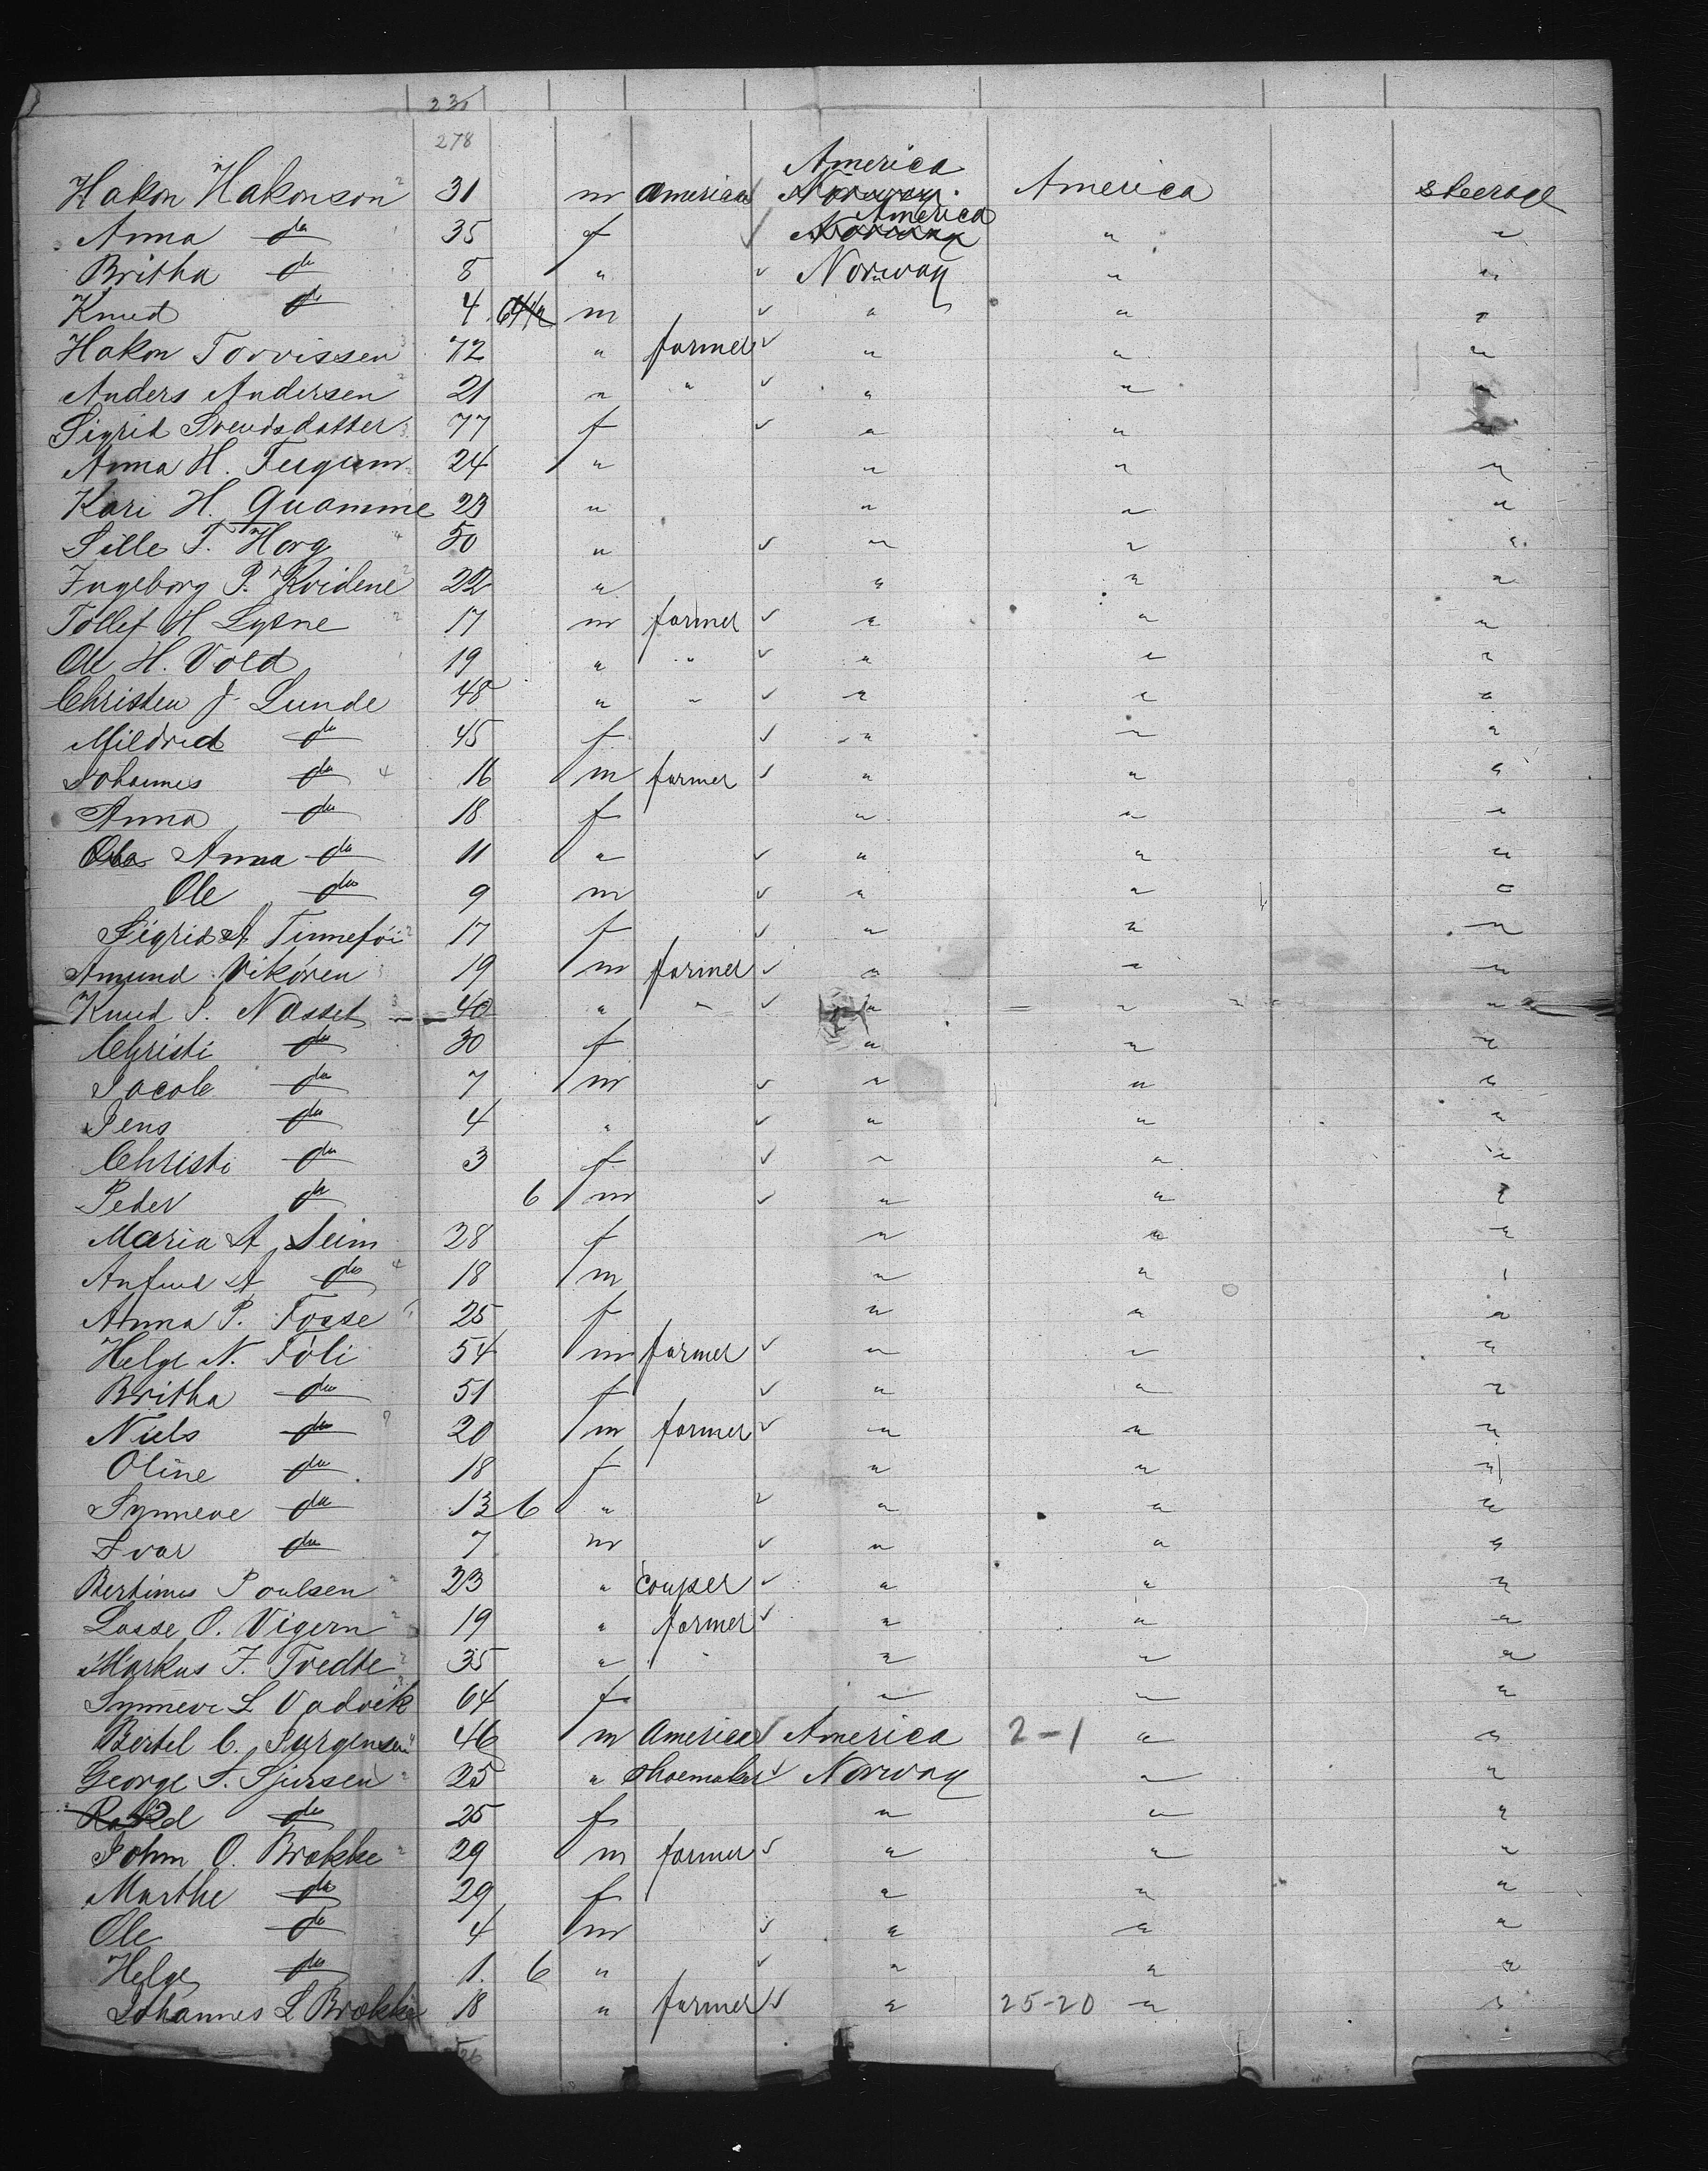 23
278
America
Hakon Hakonson 31 m America Norway America steerage
America
Anna do 35 f Norway " "
Britha do 8 " Norway " "
Knud do 4 m " " "
Hakon Torvissen 72 " farmer " " "
Anders Andersen 21 " " " " "
Sigrid Svendsdatter 77 f " " "
Anna H. Fuglum 24 " " " "
Kari H. Quamme 23 " " " "
Sille T. Horg 50 " " " "
Ingeborg P. Kvidene 22 " " " "
Tollef H Lysne 17 m farmer " " "
Ole H. Vold 19 " " " " "
Christen J. Lunde 48 " " " " "
Mildrid do 45 f " " "
Johannes do 16 m farmer " " "
Anna do 18 f " " "
Anna do 11 " " " "
Ole do 9 m " " "
Sigrid A Finneföi 17 f " " "
Amund Vikören 19 m farmer " " "
Knud P. Nasset 40 " " " " "
Christi do 30 f " " "
Jacob do 7 m " " "
Jens do 4 " " " "
Christi do 3 f " " "
Peder do 6 m " " "
Maria A Seim 28 f " " "
Anfind A do 18 m " " "
Anna P. Fosse 25 f " " "
Helge N. Föli 54 m farmer " " "
Britha do 51 f " " "
Niels do 20 m farmer " " "
Oline do 18 f " " "
Synneve do 13 6 " " " "
Ivar do 7 m " " "
Bertinus Poulsen 23 " couper " " "
Lasse O. Vigern 19 " farmer " " "
Markus J. Tvedte 35 " " " " "
Synneve L Vadvik 64 f " " "
Bertel C. Jurgensen 46 m America America 2-1 " "
George S. Sjursen 25 " shoemaker Norway " "
do 25 f " " "
John O. Brekke 29 m farmer " " "
Marthe do 29 f " " "
Ole do 4 m " " "
Helge do 1. 6 " " " "
Johannes L Brekke 18 " farmer " 25-20 " "